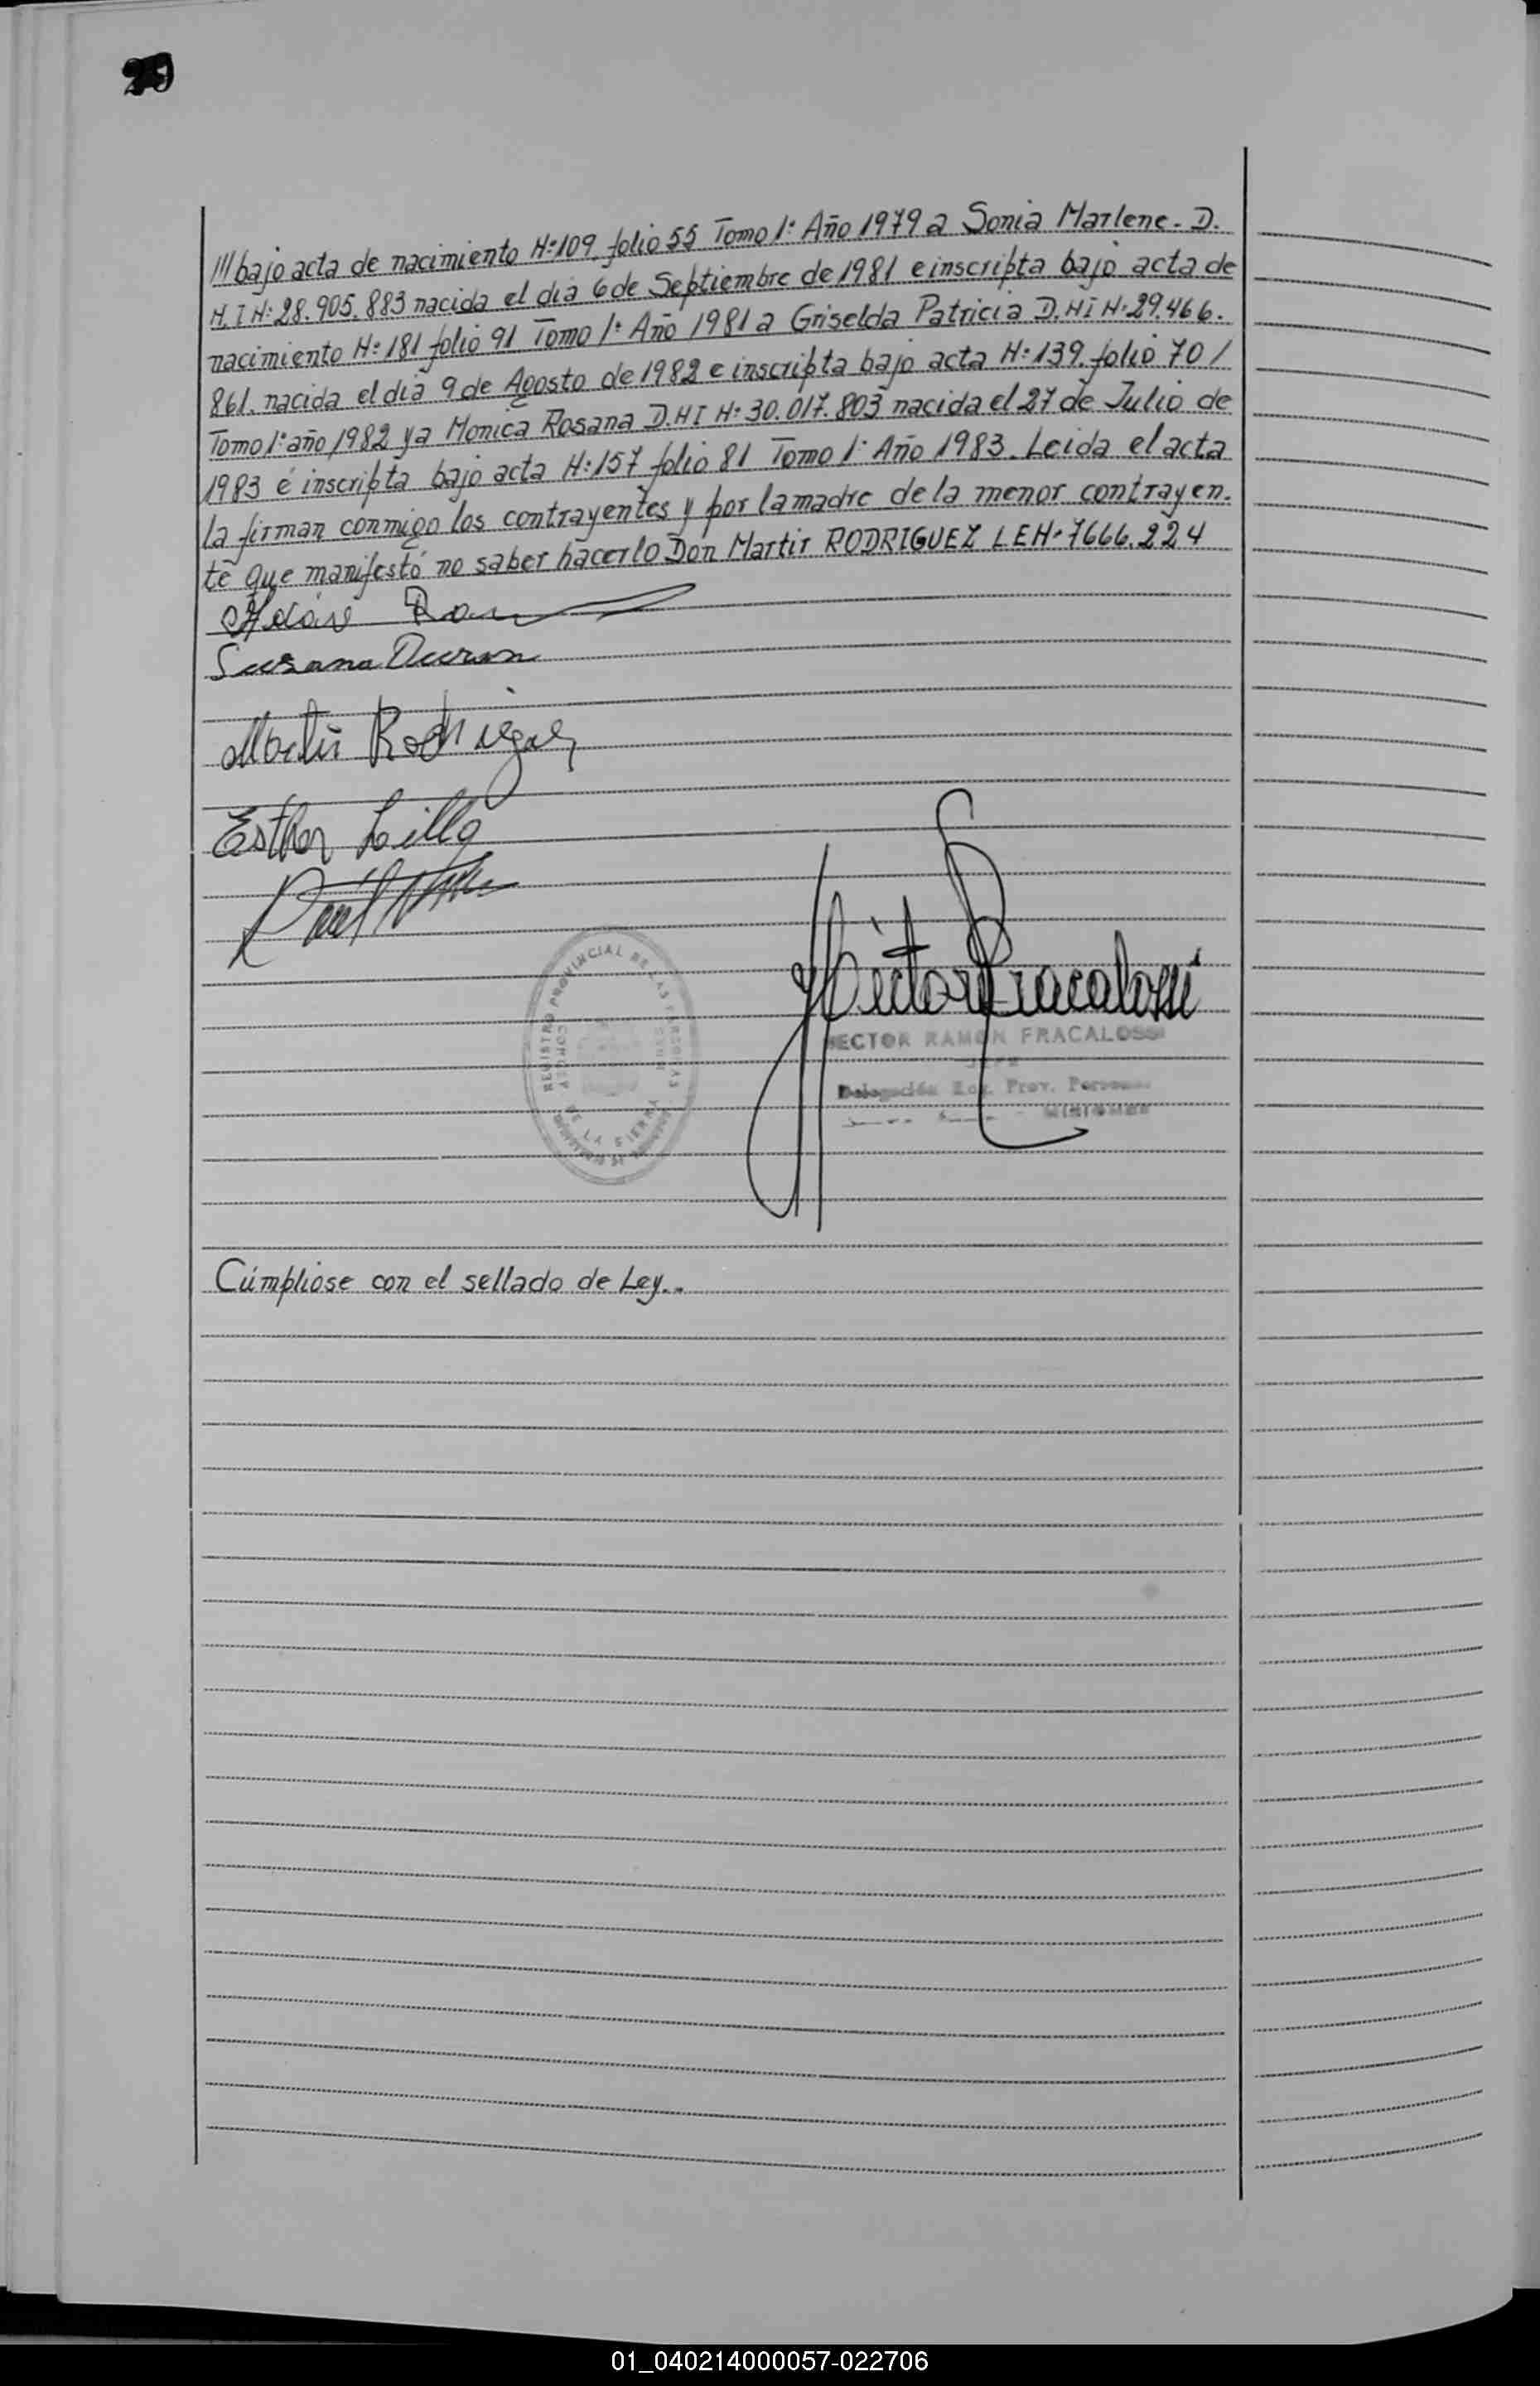 29
/// bajo acta de nacimiento N:109. folio 55 Tomo 1º Año 1979 a Sonia Marlene. D.
N. I N: 28.905.883 nacida el dia 6 de Septiembre de 1981 e inscripta bajo acta de
nacimiento N: 181 folio 91 Tomo 1º Año 1981 a Griselda Patricia D.NI N: 29.466.
861. nacida el dia 9 de Agosto de 1982 e inscripta bajo acta N: 139. folio 70 /
Tomo 1º año 1982 y a Monica Rosana D.NI N: 30.017.803 nacida el 27 de Julio de
1983 é inscripta bajo acta N: 157 folio 81 Tomo 1º Año 1983. Leida el acta
la firman conmigo los contrayentes y por la madre de la menor contrayen.
te que manifestó no saber hacerlo Don Martir RODRIGUEZ L E N: 7666.224
Susana Duran
Martir Rodriguez
Esther Lillo
Hector Fracalossi
REGISTRO PROVINCIAL DE LAS PERSONAS
DE LA SIERRA
HECTOR RAMON FRACALOSSI
JEFE
Delegación Reg. Prov. Personas
MISIONES
Cúmpliose con el sellado de Ley..
01_040214000057-022706